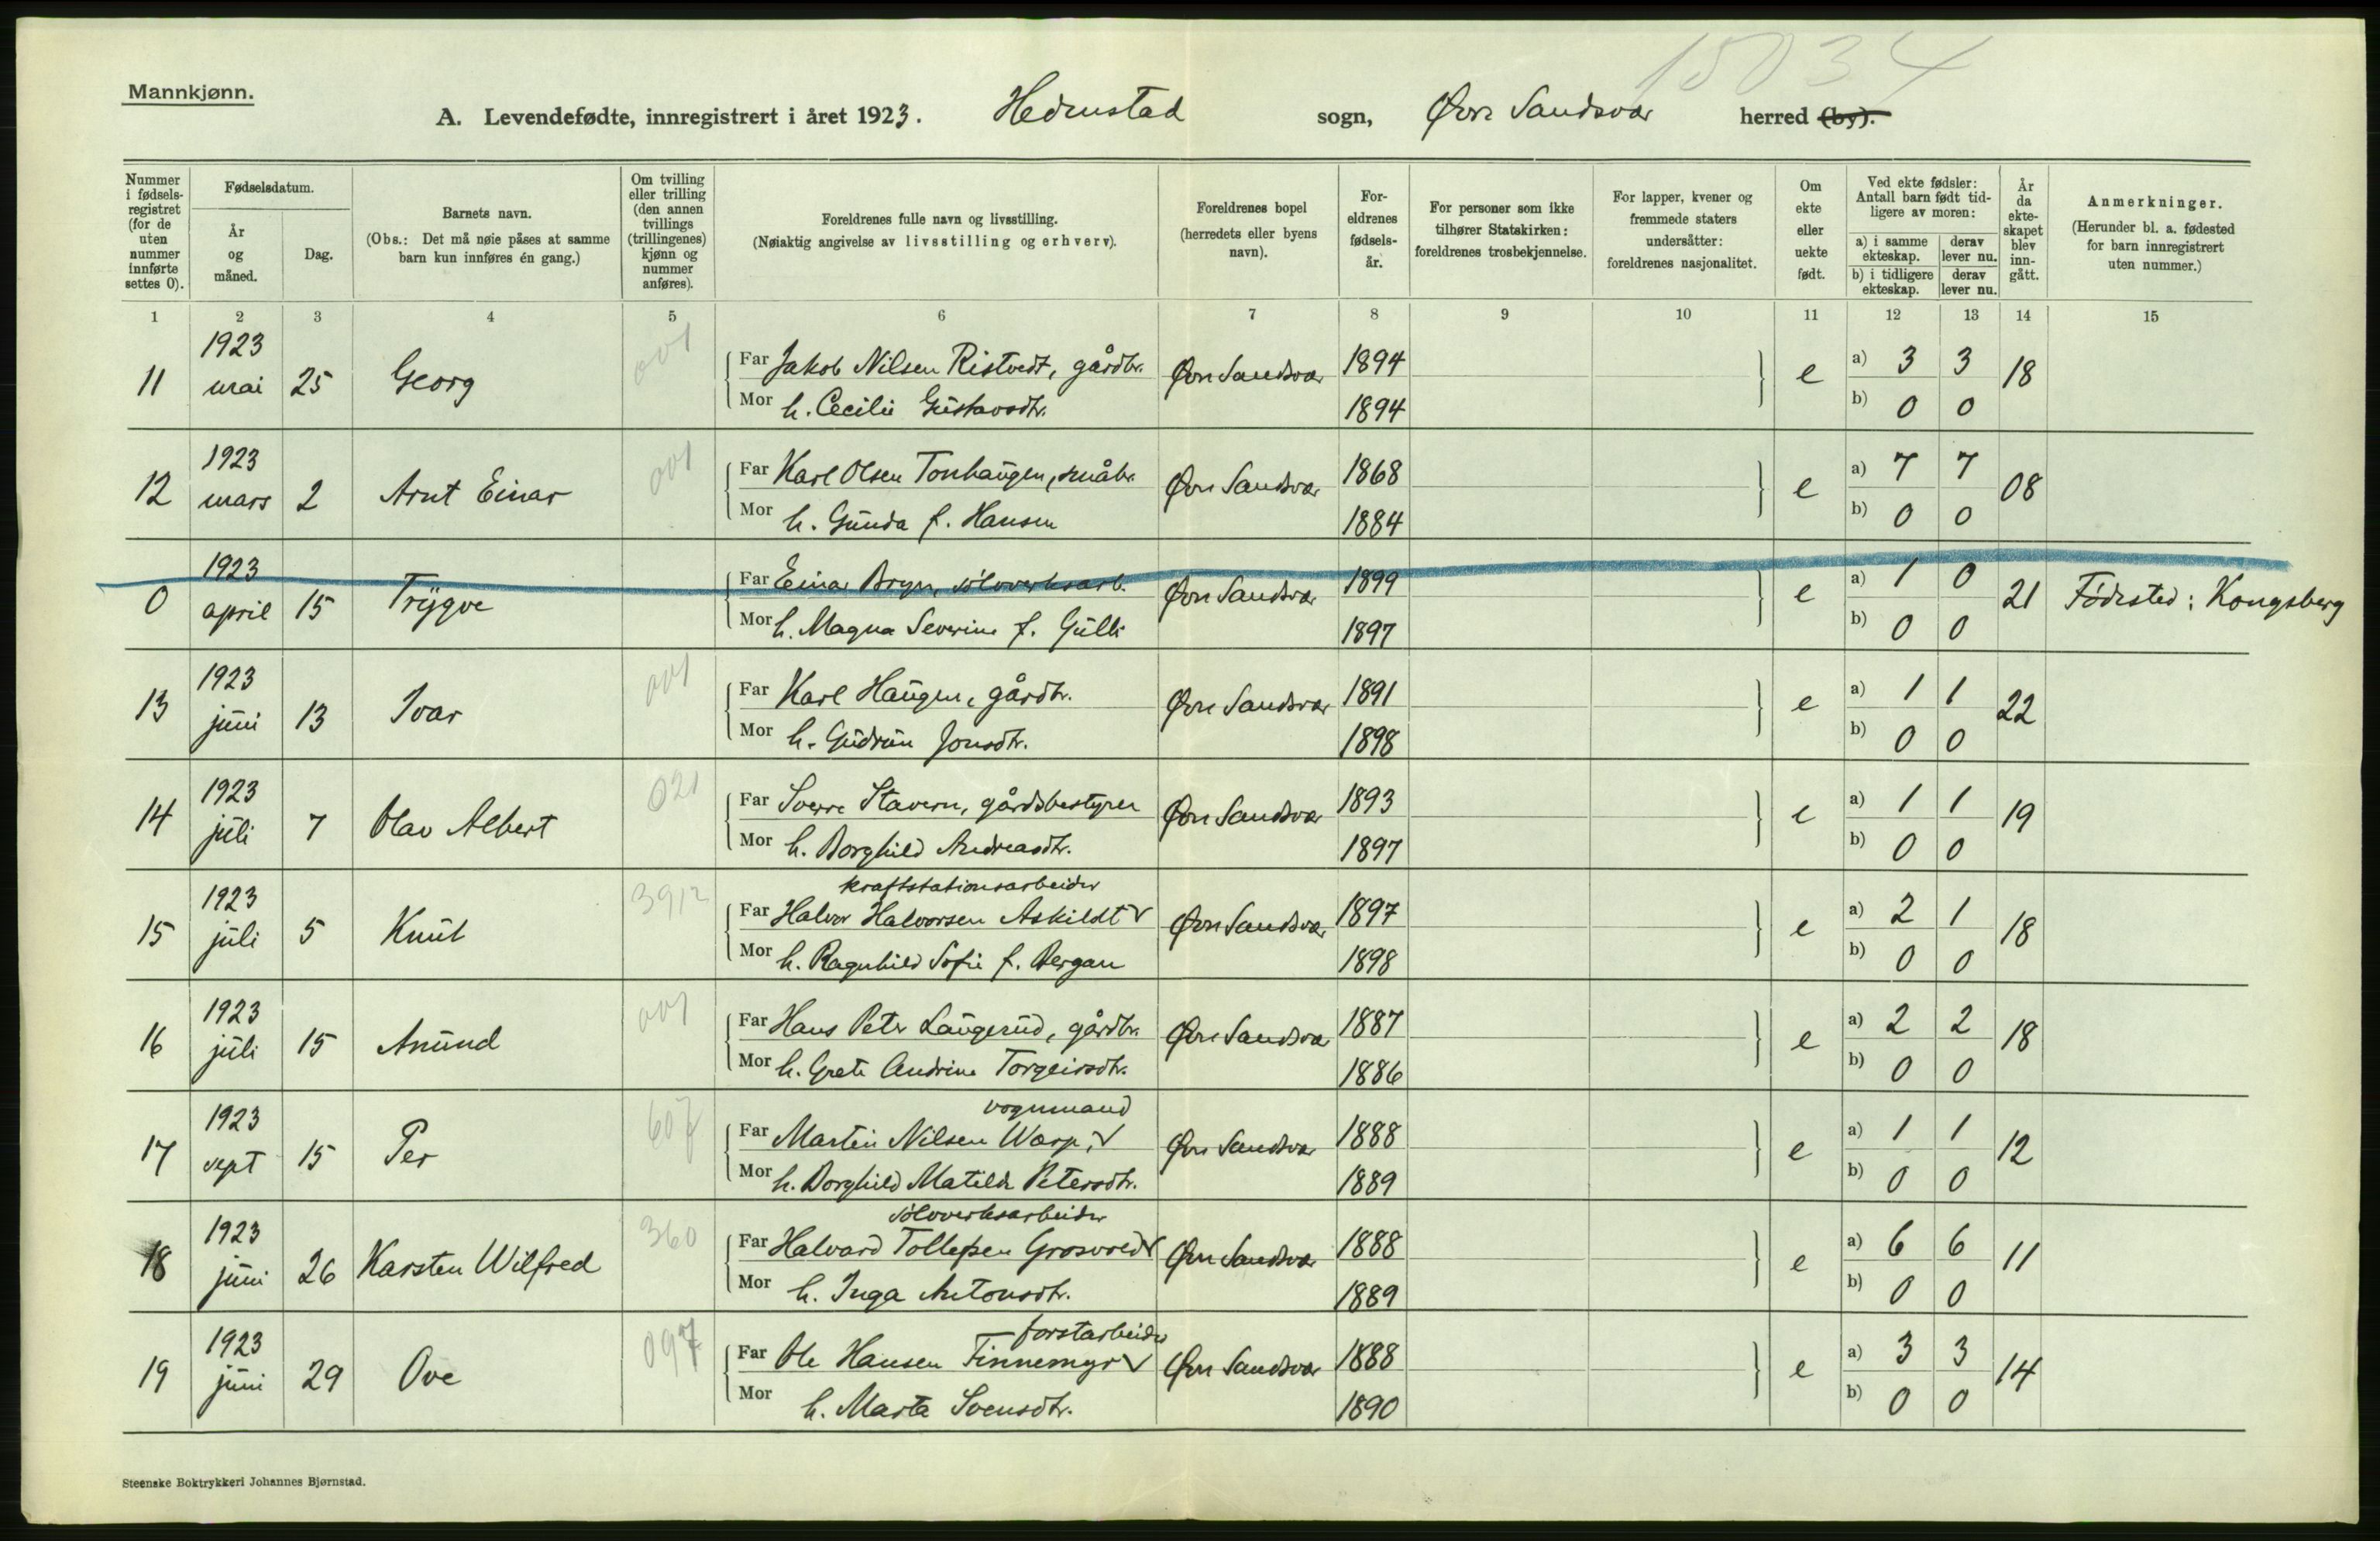 15034
Mannkjønn.
A. Levendefødte, innregistrert i året 1923. Hedenstad sogn, Øvre Sandsvær herred (by).
Nummer i fødsels-registret (for de uten nummer innførte settes 0).
Fødselsdatum.
År og måned.
Dag.
Barnets navn.
(Obs.: Det må nøie påses at samme barn kun innføres én gang.)
Om tvilling eller trilling (den annen tvillings (trillingenes) kjønn og nummer anføres).
Foreldrenes fulle navn og livsstilling.
(Nøiaktig angivelse av livsstilling og erhverv).
Foreldrenes bopel (herredets eller byens navn).
For-eldrenes fødsels-år.
For personer som ikke tilhører Statskirken: foreldrenes trosbekjennelse.
For lapper, kvener og fremmede staters undersåtter: foreldrenes nasjonalitet.
Om ekte eller uekte født.
Ved ekte fødsler: Antall barn født tid-ligere av moren:
a) i samme ekteskap. derav lever nu.
b) i tidligere ekteskap. derav lever nu.
År da ekte-skapet blev inn-gått.
Anmerkninger.
(Herunder bl. a. fødested for barn innregistrert uten nummer.)
1 2 3 4 5 6 7 8 9 10 11 12 13 14 15
11 1923 mai 25 Georg 001 Far Jakob Nilsen Ristvedt, gårdbr. Øvre Sandsvær 1894 e a) 3 3 18
Mor h. Cecilie Gustavsdtr. 1894 b) 0 0
12 1923 mars 2 Arnt Einar 001 Far Karl Olsen Tonhaugen, småbr. Øvre Sandsvær 1868 e a) 7 7 08
Mor h. Gunda f. Hansen 1884 b) 0 0
0 1923 april 15 Trygve Far Einar Bryn, sølvverksarb. Øvre Sandsvær 1899 e a) 1 0 21 Fødested: Kongsberg
Mor h. Magna Severine f. Gulli 1897 b) 0 0
13 1923 juni 13 Ivar 001 Far Karl Haugen, gårdbr. Øvre Sandsvær 1891 e a) 1 1 22
Mor h. Gudrun Jonsdtr. 1898 b) 0 0
14 1923 juli 7 Olav Albert 021 Far Sverre Stavern, gårdsbestyrer Øvre Sandsvær 1893 e a) 1 1 19
Mor h. Borghild Andreasdtr. 1897 b) 0 0
kraftstationsarbeider
15 1923 juli 5 Knut 3912 Far Halvor Halvorsen Askildt Øvre Sandsvær 1897 e a) 2 1 18
Mor h. Ragnhild Sofie f. Bergan 1898 b) 0 0
16 1923 juli 15 Anund 001 Far Hans Peter Laugerud, gårdbr. Øvre Sandsvær 1887 e a) 2 2 18
Mor h. Grete Andrine Torgeirsdtr. 1886 b) 0 0
vognmand
17 1923 sept 15 Per 607 Far Martin Nilsen Warp, Øvre Sandsvær 1888 e a) 1 1 12
Mor h. Borghild Matilde Petersdtr. 1889 b) 0 0
sølvverksarbeider
18 1923 juni 26 Karsten Wilfred 360 Far Halvard Tollefsen Grosvold Øvre Sandsvær 1888 e a) 6 6 11
Mor h. Inga Antonsdtr. 1889 b) 0 0
forstarbeider
19 1923 juni 29 Ove 097 Far Ole Hansen Finnemyr Øvre Sandsvær 1888 e a) 3 3 14
Mor h. Marta Svensdtr. 1890 b) 0 0
Steenske Boktrykkeri Johannes Bjørnstad.